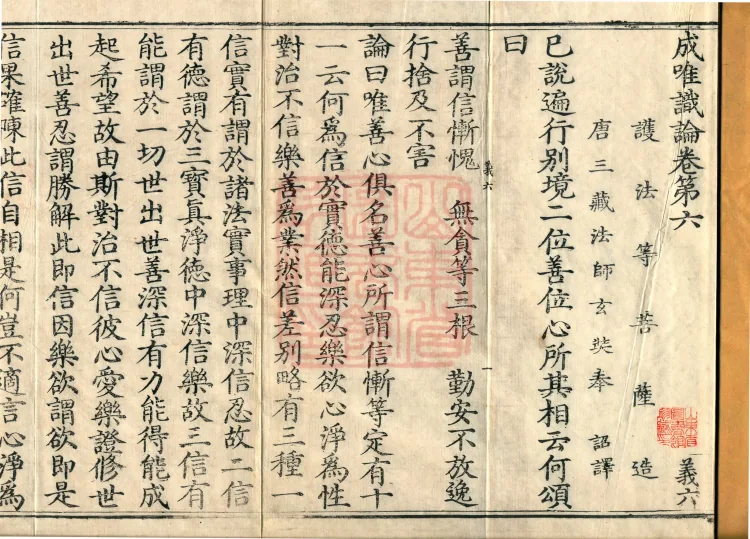 成唯識論卷第六 義六
護法等菩薩造
唐三藏法師玄奘奉 詔譯
已說遍行別境二位善位心所其相云何頌
曰
義六 一
善謂信慚愧 無貪等三根 勤安不放逸
行捨及不害
論曰唯善心俱名善心所謂信慚等定有十
一云何爲信於實德能深忍樂欲心淨爲性
對治不信樂善爲業然信差別略有三種一
信實有謂於諸法實事理中深信忍故二信
有德謂於三寶真淨德中深信樂故三信有
能謂於一切世出世善深信有力能得能成
起希望故由斯對治不信彼心愛樂證修世
出世善忍謂勝解此即信因樂欲謂欲即是
信果確陳此信自相是何豈不適言心淨爲